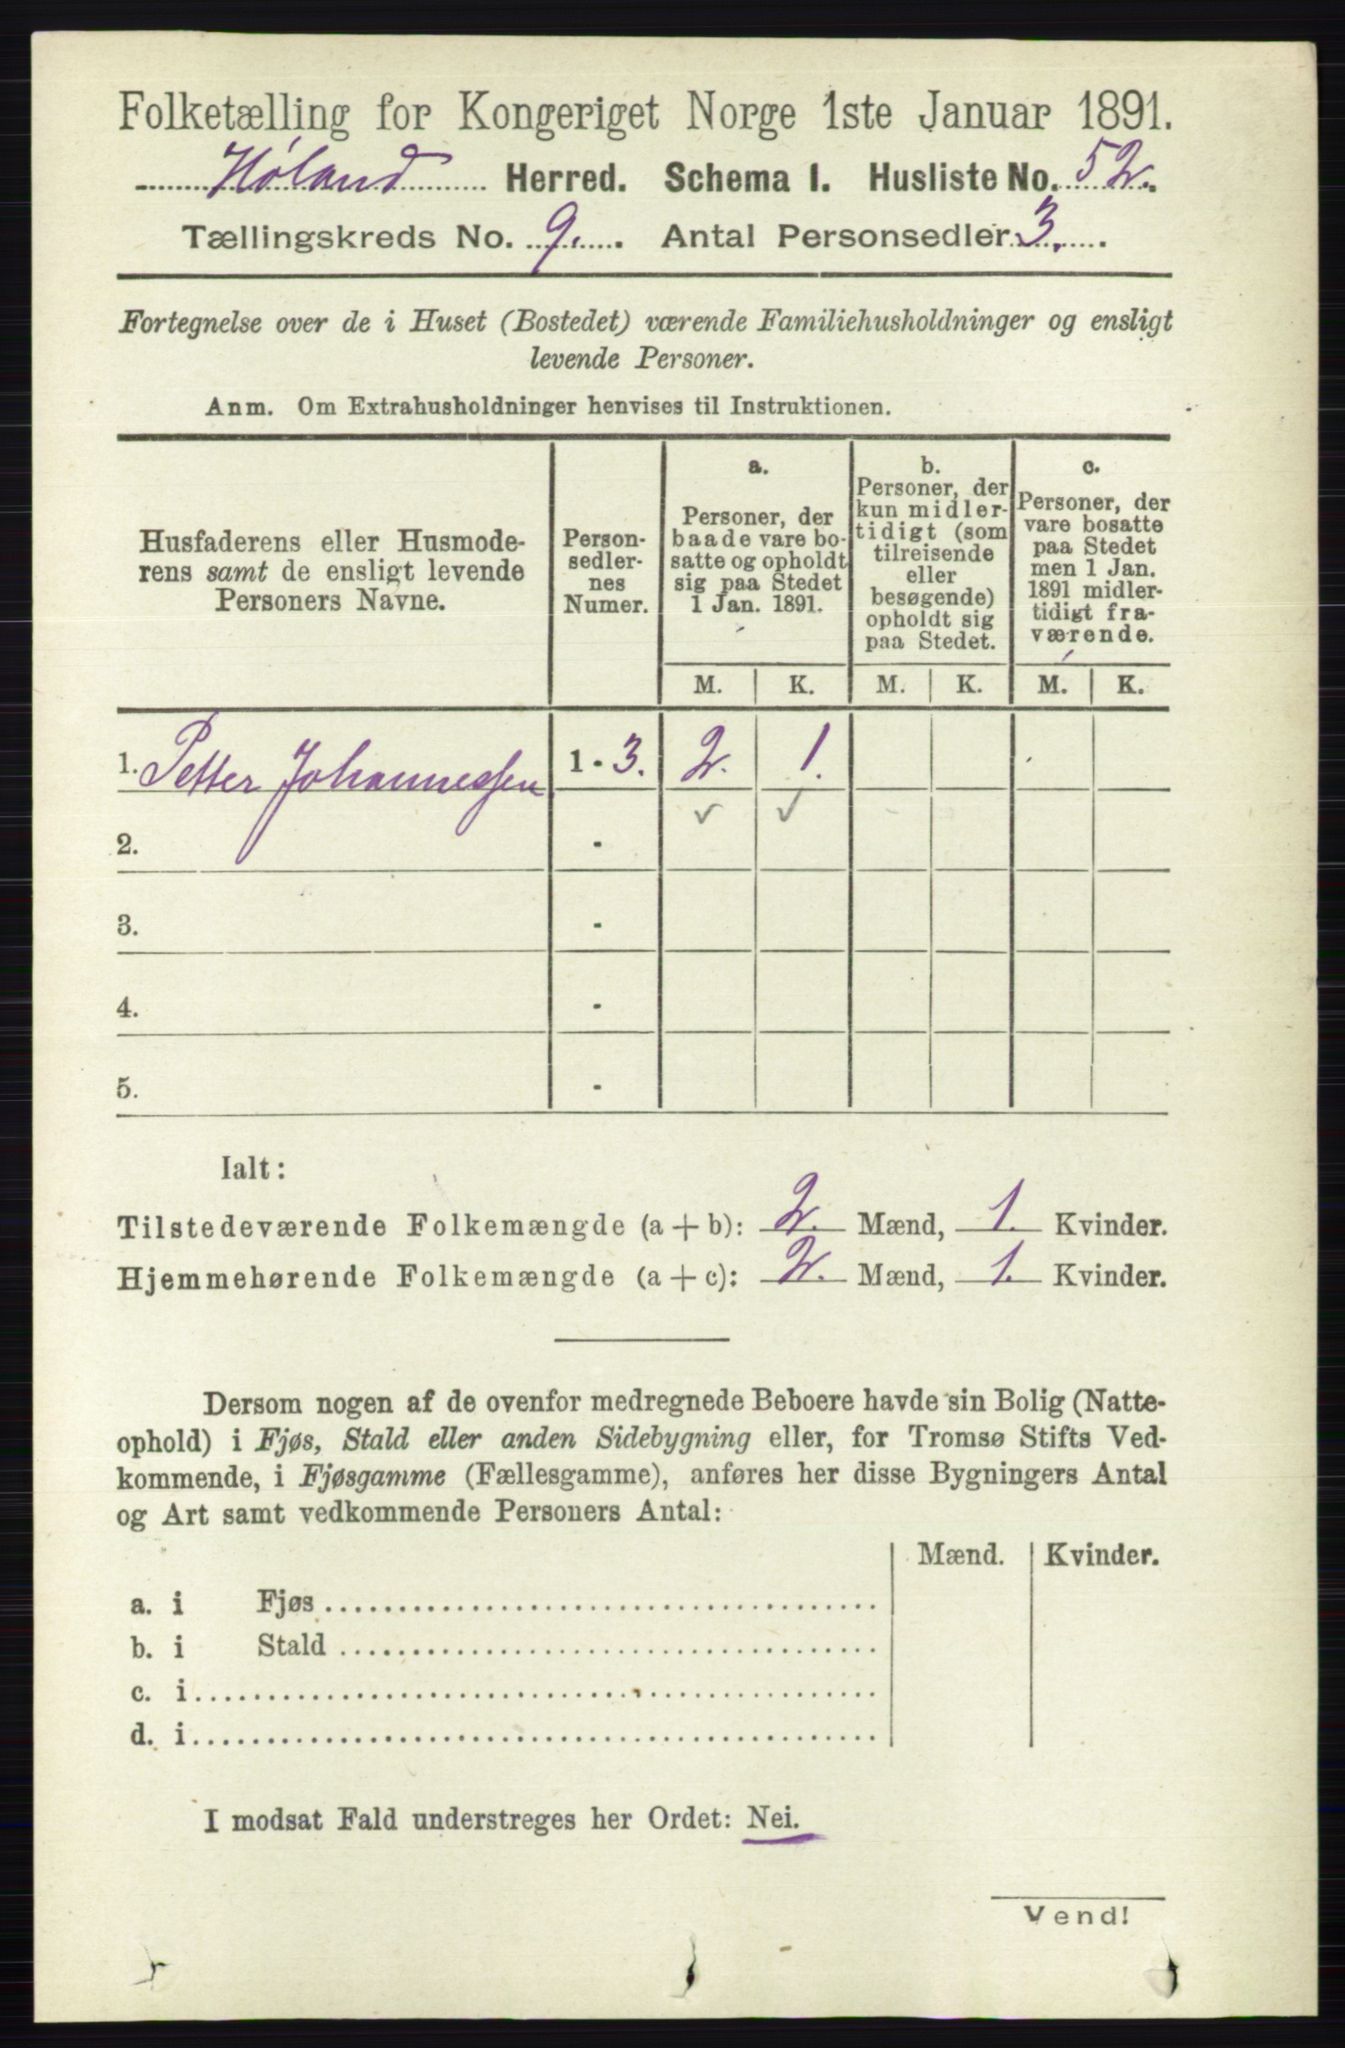 Folketælling for Kongeriget Norge 1ste Januar 1891.
Høland Herred. Schema I. Husliste No. 52.
Tællingskreds No. 9. Antal Personsedler 3.
Fortegnelse over de i Huset (Bostedet) værende Familiehusholdninger og ensligt
levende Personer.
Anm. Om Extrahusholdninger henvises til Instruktionen.
Husfaderens eller Husmode-
rens samt de ensligt levende
Personers Navne.
Person-
sedler-
nes
Numer.
a.
Personer, der
baade vare bo-
satte og opholdt
sig paa Stedet
1 Jan. 1891.
b.
Personer, der
kun midler-
tidigt (som
tilreisende
eller
besøgende)
opholdt sig
paa Stedet.
c.
Personer, der
vare bosatte
paa Stedet
men 1 Jan.
1891 midler-
tidigt fra-
værende.
M. K. M. K. M. K.
1. Petter Johannessen 1 - 3. 2. 1.
2. -
3. -
4. -
5. -
Ialt:
Tilstedeværende Folkemængde (a + b): 2. Mænd, 1. Kvinder.
Hjemmehørende Folkemængde (a + c): 2. Mænd, 1. Kvinder.
Dersom nogen af de ovenfor medregnede Beboere havde sin Bolig (Natte-
ophold) i Fjøs, Stald eller anden Sidebygning eller, for Tromsø Stifts Ved-
kommende, i Fjøsgamme (Fællesgamme), anføres her disse Bygningers Antal
og Art samt vedkommende Personers Antal:
Mænd. Kvinder.
a. i Fjøs
b. i Stald
c. i
d. i
I modsat Fald understreges her Ordet: Nei.
Vend!